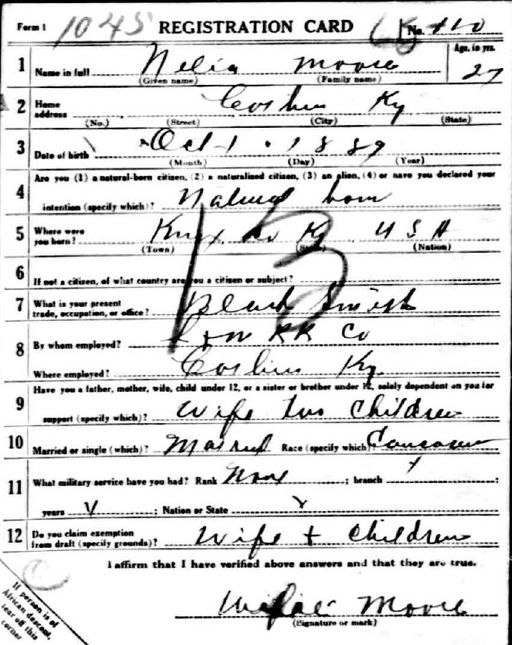 Form 1 1045 REGISTRATION CARD No. 410
1 Name in full Moore Age, in yrs. 27
(Given name) (Family name)
2 Home address Corbin Ky
(No.) (Street) (City) (State)
3 Date of birth Oct 1 1889
(Month) (Day) (Year)
Are you (1) a natural-born citizen, (2) a naturalized citizen, (3) an alien, (4) or have you declared your
4 intention (specify which)? Natural born
5 Where were you born? Knox Co Ky U S A
(Town) (State) (Nation)
6 If not a citizen, of what country are you a citizen or subject?
13
7 What is your present trade, occupation, or office? Black Smith
8 By whom employed? L + N RR Co
Where employed? Corbin Ky.
Have you a father, mother, wife, child under 12, or a sister or brother under 12, solely dependent on you for
9 support (specify which)? Wife two Children
10 Married or single (which)? Married Race (specify which)? Caucasian
11 What military service have you had? Rank None ; branch ;
years ; Nation or State
12 Do you claim exemption from draft (specify grounds)? Wife + Children
I affirm that I have verified above answers and that they are true.
If person is of
African descent,
tear off this
corner
Moore
(Signature or mark)